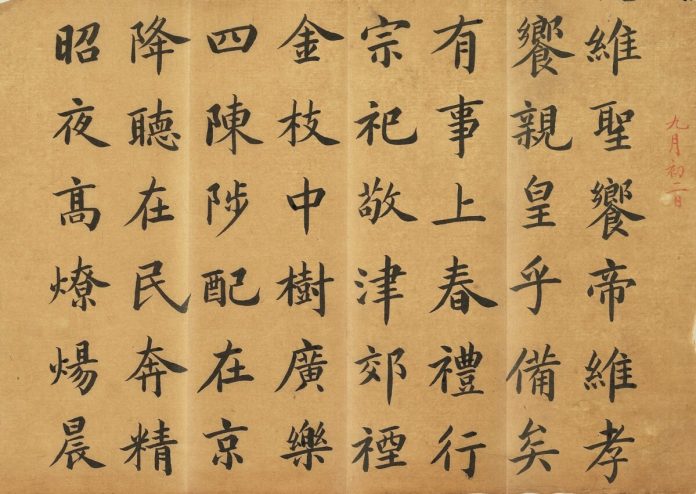 九月初二日
維聖饗帝維孝
饗親皇乎備矣
有事上春禮行
宗祀敬津郊禋
金枝中樹廣樂
四陳陟配在京
降聽在民奔精
昭夜髙燎煬晨